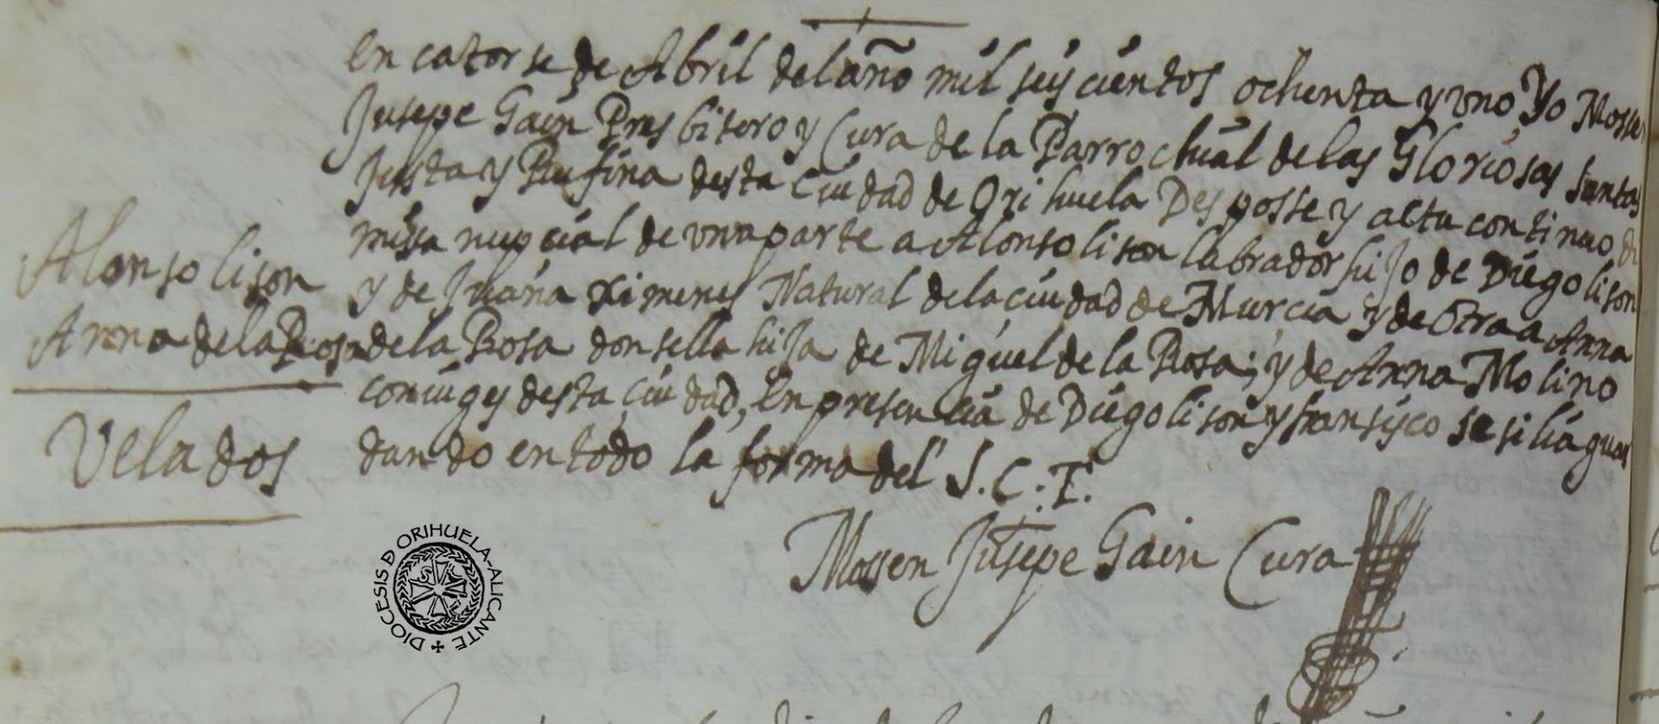 en catorse de Abril del año mil seys cientos ochenta y uno Yo Mossen
Jusepe Gain Presbitero y Cura de la Parrochial de las Gloriosas Santas
Justa y Rufina desta ciudad de Orihuela Despose y actu continuo di
missa nupcial de una parte a Alonso lison labrador hijo de Diego lison
y de Juana Ximenes Natural de la ciudad de Murcia y de otra a Anna
de la Rosa donsella hija de Miguel de la Rosa; y de Anna Molino
coniuges desta ciudad, En presencia de Diego lison y fransisco sesilia guar
dando en todo la forma del S.C.T.
Alonso lison
Anna de la Rosa
Velados
Mossen Jusepe Gain Cura
DIOCESIS D ORIHUELA-ALICANTE